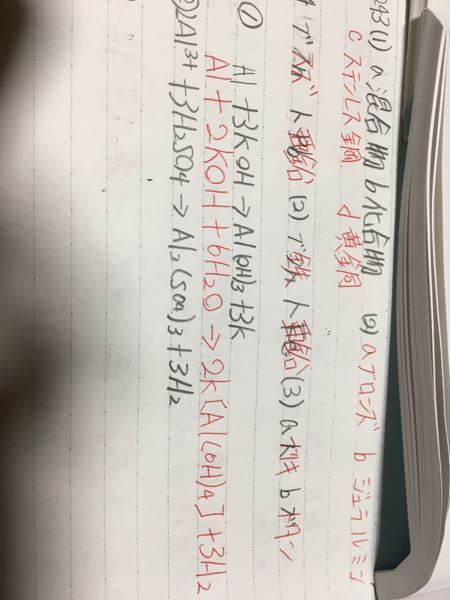 243(1) a 混合物 b 化合物 (2) a ブロンズ b ジュラルミン
c ステンレス鋼 d 黄銅
4 ブ スズ ト 亜鉛 (2) ブ 鉄 ト 亜鉛 (3) a ブリキ b トタン
① Al+3KOH→Al(OH)₃+3K
Al+2KOH+6H₂O→2K[Al(OH)₄]+3H₂
②2Al³⁺+3H₂SO₄→Al₂(SO₄)₃+3H₂